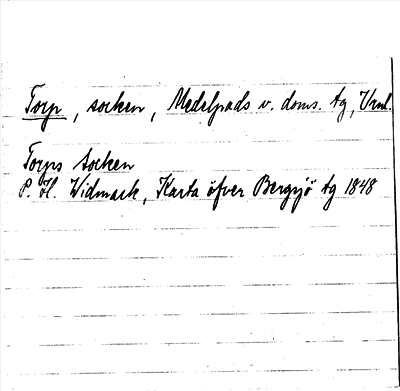 Torp, socken, Medelpads v. doms. tg, Vnl.
Torps Socken
P. H. Widmark, Karta öfver Bergsjö tg 1848